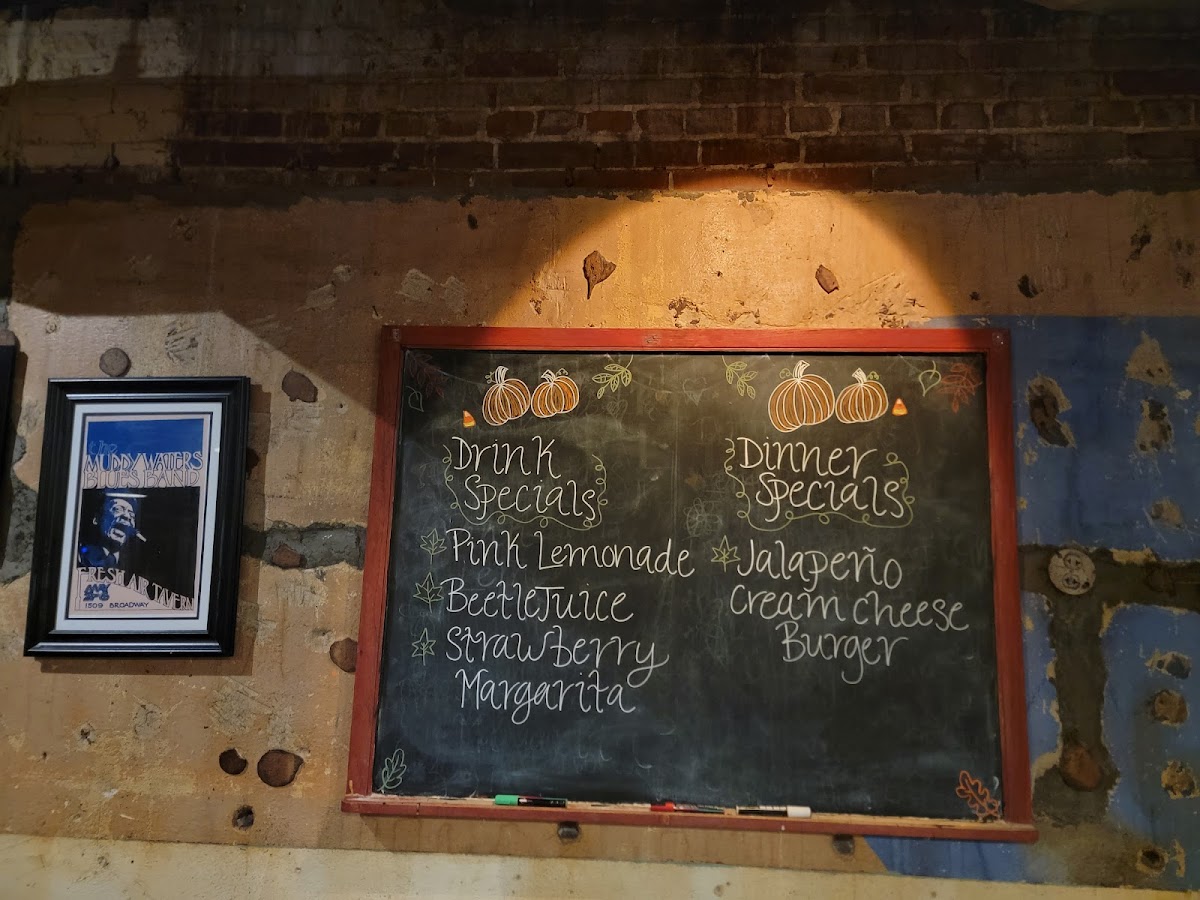 the
MUDDY WATERS
BLUES BAND
FRESH AIR TAVERN
1509 BROADWAY
Drink
Specials
Pink Lemonade
BeetleJuice
Strawberry
Margarita
Dinner
Specials
Jalapeño
Cream Cheese
Burger